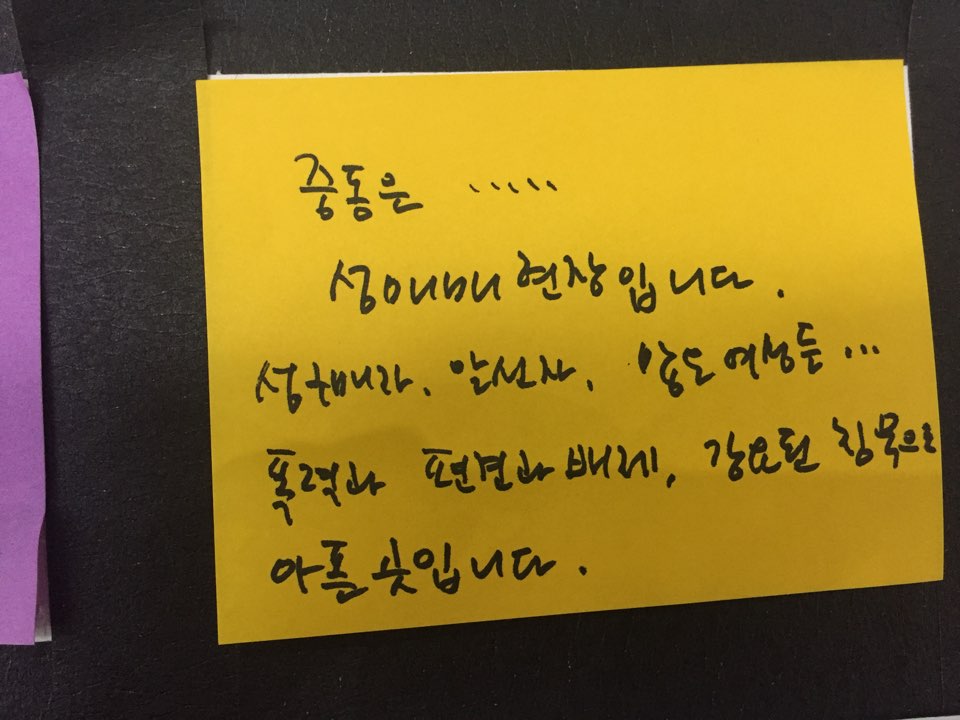 중동은 .....
성매매 현장입니다.
성착매자, 알선자, 여성들...
폭력과 편견과 배제, 강요된 침묵으로
아픈 곳입니다.